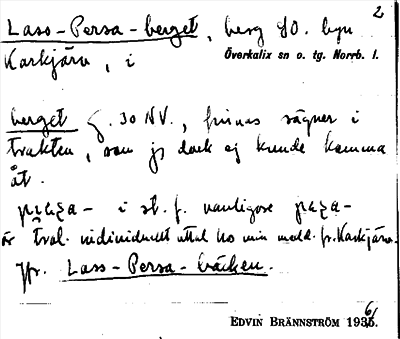 2
Lass-Persa-berget, berg SO. byn
Karkjärv, i Överkalix sn o. tg. Norrb. l.
berget g. 30 NV., finnas sägner i
trakten, som jg dock ej kunde komma
åt.
i st. f. vanligare
är trol. individuellt uttal hos min medd. fr. Karkjärv.
Jfr. Lass-Persa-bäcken.
EDVIN BRÄNNSTRÖM 1936.